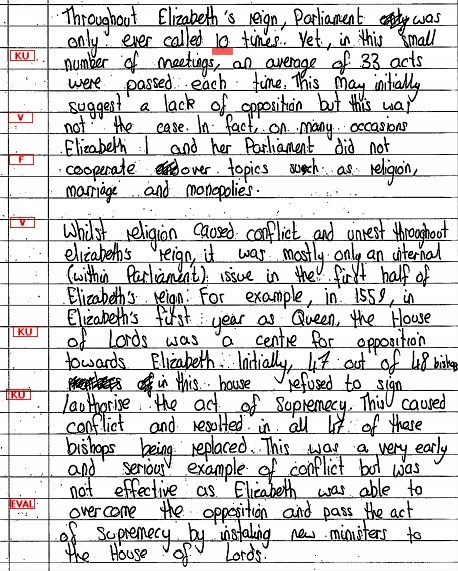 Throughout Elizabeth's reign, Parliament was
only ever called 10 times. Yet, in this small
KU
number of meetings, an average of 33 acts
were passed each time. This may initially
suggest a lack of opposition but this was
V
not the case. In fact, on many occasions
Elizabeth I and her Parliament did not
F
cooperate over topics such as religion,
marriage and monopolies.
V
Whilst religion caused conflict and unrest throughout
elizabeth's reign, it was mostly only an internal
(within Parliament) issue in the first half of
Elizabeth's reign. For example, in 1559, in
Elizabeth's first year as Queen, the House
KU
of Lords was a centre for opposition
towards Elizabeth. Initially, 47 out of 48 bishops
in this house refused to sign
KU
/authorise the act of Supremacy. This caused
conflict and resulted in all 47 of these
bishops being replaced. This was a very early
and serious example of conflict but was
not effective as Elizabeth was able to
EVAL
overcome the opposition and pass the act
of Supremacy by instaling new ministers to
the House of Lords.